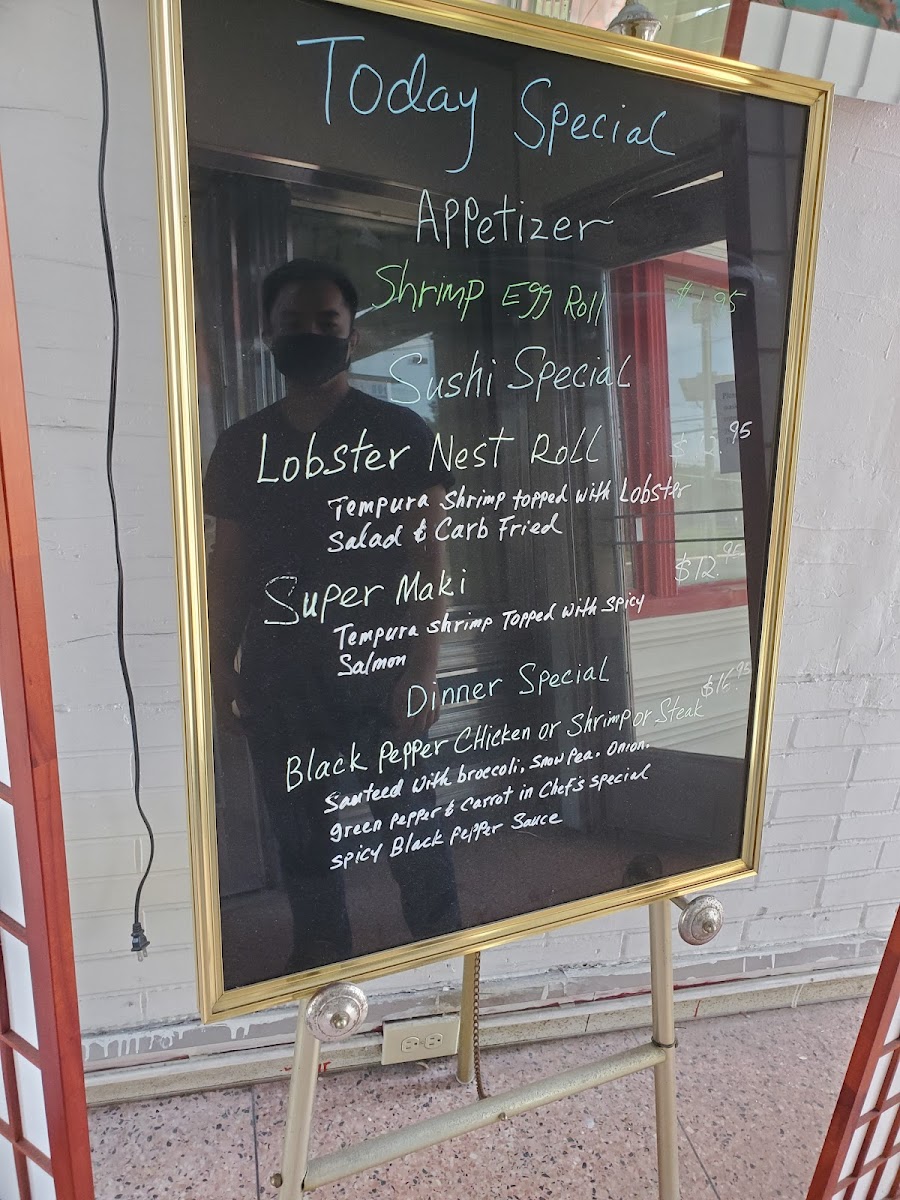 Today Special
Appetizer
Shrimp Egg Roll
Sushi Special
Lobster Nest Roll
Tempura Shrimp topped with Lobster
Salad & Carb Fried
Super Maki $12.95
Tempura shrimp Topped with spicy
Salmon
Dinner Special
Black Pepper CHicken or Shrimp or Steak $16.95
Sauteed with broccoli, snow pea. onion.
green pepper & Carrot in Chef's special
spicy Black Pepper Sauce